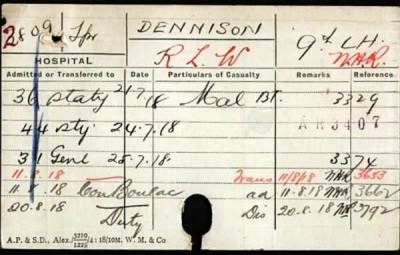 2809 Tpr DENNISON
R L W 9th L.H. N.H.R.
HOSPITAL
Admitted or Transferred to Date Particulars of Casualty Remarks Reference
36 Staty 21-7/18 Mal BT. 3329
44 Sty 24-7.18 AH3407
31 Genl 25-7.18. 3374
11.8.18 Trans 11/8/18 NHR 3653
11.8.18 Con Boulac ad 11.8.18 NHR 3662
20.8.18 Duty Dis 20.8.18 NR 3792
A.P. & S.D., Alex./3210/1225/4:18/10M. W. M. & Co